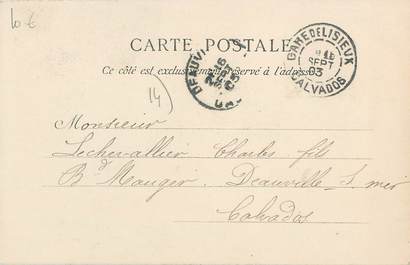 10 €
CARTE POSTALE
Ce côté est exclusivement réservé à l'adresse
GARE DE LISIEUX
SEPT
03
CALVADOS
14)
Monsieur
Lechevallier Charles fils
Bd Mauger. Deauville s. mer
Calvados